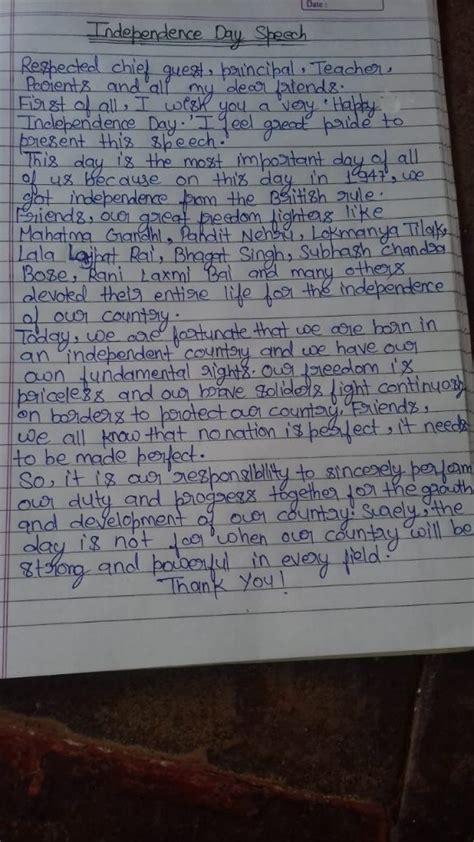 Date :
Independence Day Speech
Respected chief guest, principal, Teacher,
Parents and all my dear friends.
First of all, I wish you a very 'Happy
Independence Day.' I feel great pride to
present this speech.
This day is the most important day of all
of us because on this day in 1947, we
got independence from the British rule.
Friends, our great freedom fighters like
Mahatma Gandhi, Pandit Nehru, Lokmanya Tilak,
Lala Lajpat Rai, Bhagat Singh, Subhash chandra
Bose, Rani Laxmi Bai and many others
devoted their entire life for the independence
of our country.
Today, we are fortunate that we are born in
an independent country and we have our
own fundamental rights. our freedom is
priceless and our brave soliders fight continuosly
on borders to protect our country. Friends,
we all know that no nation is perfect, it needs
to be made perfect.
So, it is our responsibility to sincerely perform
our duty and progress together for the growth
and development of our country. Surely, the
day is not far when our country will be
strong and powerful in every field.
Thank You!